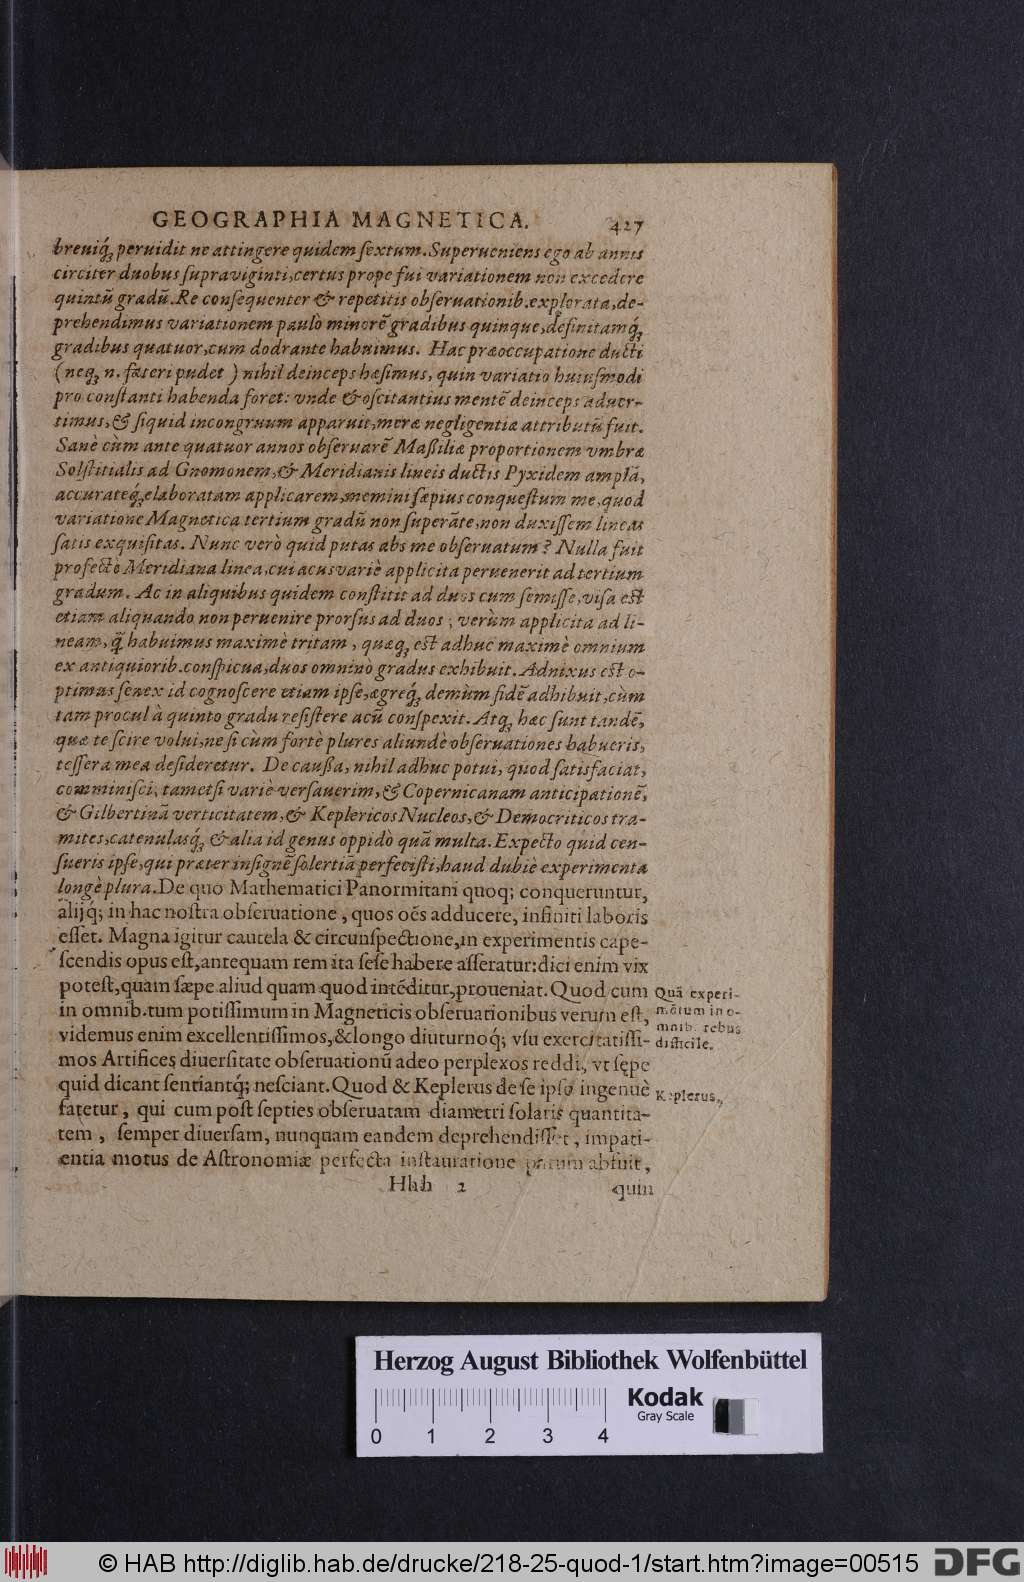 GEOGRAPHIA MAGNETICA. 427
breuiq́ꝫ peruidit ne attingere quidem ſextum. Superueniens ego ab annis
circiter duobus ſupra viginti, certus prope fui variationem non excedere
quintū gradū. Re conſequenter & repetitis obſeruationib. explorata, de-
prehendimus variationem paulò minorē gradibus quinque, definitamq́ꝫ
gradibus quatuor, cum dodrante habuimus. Hac præoccupatione ducti
(neqꝫ n. fateri pudet) nihil deinceps hæſimus, quin variatio huiuſmodi
pro conſtanti habenda foret: vnde & oſcitantius mentē deinceps aduer-
timus, & ſiquid incongruum apparuit, meræ negligentiæ attributū fuit.
Sanè cùm ante quatuor annos obſeruarē Maßiliæ proportionem vmbræ
Solſtitialis ad Gnomonem, & Meridianis lineis ductis Pyxidem amplā,
accurateq́ꝫ elaboratam applicarem, memini ſæpius conqueſtum me, quod
variatione Magnetica tertium gradū non ſuperāte, non duxiſſem lineas
ſatis exquiſitas. Nunc verò quid putas abs me obſeruatum? Nulla fuit
profectò Meridiana linea, cui acus variè applicita peruenerit ad tertium
gradum. Ac in aliquibus quidem conſtitit ad duos cum ſemiſſe, viſa est
etiam aliquando non peruenire prorſus ad duos; verùm applicita ad li-
neam, q̃ habuimus maximè tritam, quæqꝫ est adhuc maximè omnium
ex antiquiorib. conſpicua, duos omninò gradus exhibuit. Adnixus est o-
ptimus ſenex id cognoſcere etiam ipſe, ægreq́ꝫ demùm fidē adhibuit, cùm
tam procul à quinto gradu reſiſtere acū conſpexit. Atqꝫ hæc ſunt tandē,
quæ te ſcire volui, ne ſi cùm fortè plures aliundè obſeruationes habueris,
teſſera mea deſideretur. De cauſſa, nihil adhuc potui, quod ſatisfaciat,
comminiſci, tametſi variè verſauerim, & Copernicanam anticipationē,
& Gilbertinā verticitatem, & Keplericos Nucleos, & Democriticos tra-
mites, catenulasq́ꝫ & alia id genus oppidò quā multa. Expecto quid cen-
ſueris ipſe, qui præter inſignē ſolertiā perfeciſti, haud dubiè experimenta
longè plura. De quo Mathematici Panormitani quoq; conqueruntur,
alijq́; in hac noſtra obſeruatione, quos oēs adducere, infiniti laboris
eſſet. Magna igitur cautela & circunſpectione, in experimentis cape-
ſcendis opus eſt, antequam rem ita ſeſe habere aſſeratur: dici enim vix
poteſt, quam ſæpe aliud quam quod intēditur, proueniat. Quod cum
in omnib. tum potiſſimum in Magneticis obſeruationibus verum eſt,
videmus enim excellentiſſimos, & longo diuturnoq́; vſu exercitatiſſi-
mos Artifices diuerſitate obſeruationū adeo perplexos reddi, vt ſępe
quid dicant ſentiantq́; neſciant. Quod & Keplerus de ſe ipſo ingenuè
fatetur, qui cum poſt ſepties obſeruatam diametri ſolaris quantita-
tem, ſemper diuerſam, nunquam eandem deprehendiſſet, impati-
entia motus de Aſtronomiæ perfecta inſtauratione parum abfuit,
Hhh 2 quin
Quā experi-
mētum in o-
mnib. rebus
difficile.
Keplerus.
Herzog August Bibliothek Wolfenbüttel
Kodak
Gray Scale
0 1 2 3 4
© HAB http://diglib.hab.de/drucke/218-25-quod-1/start.htm?image=00515
DFG